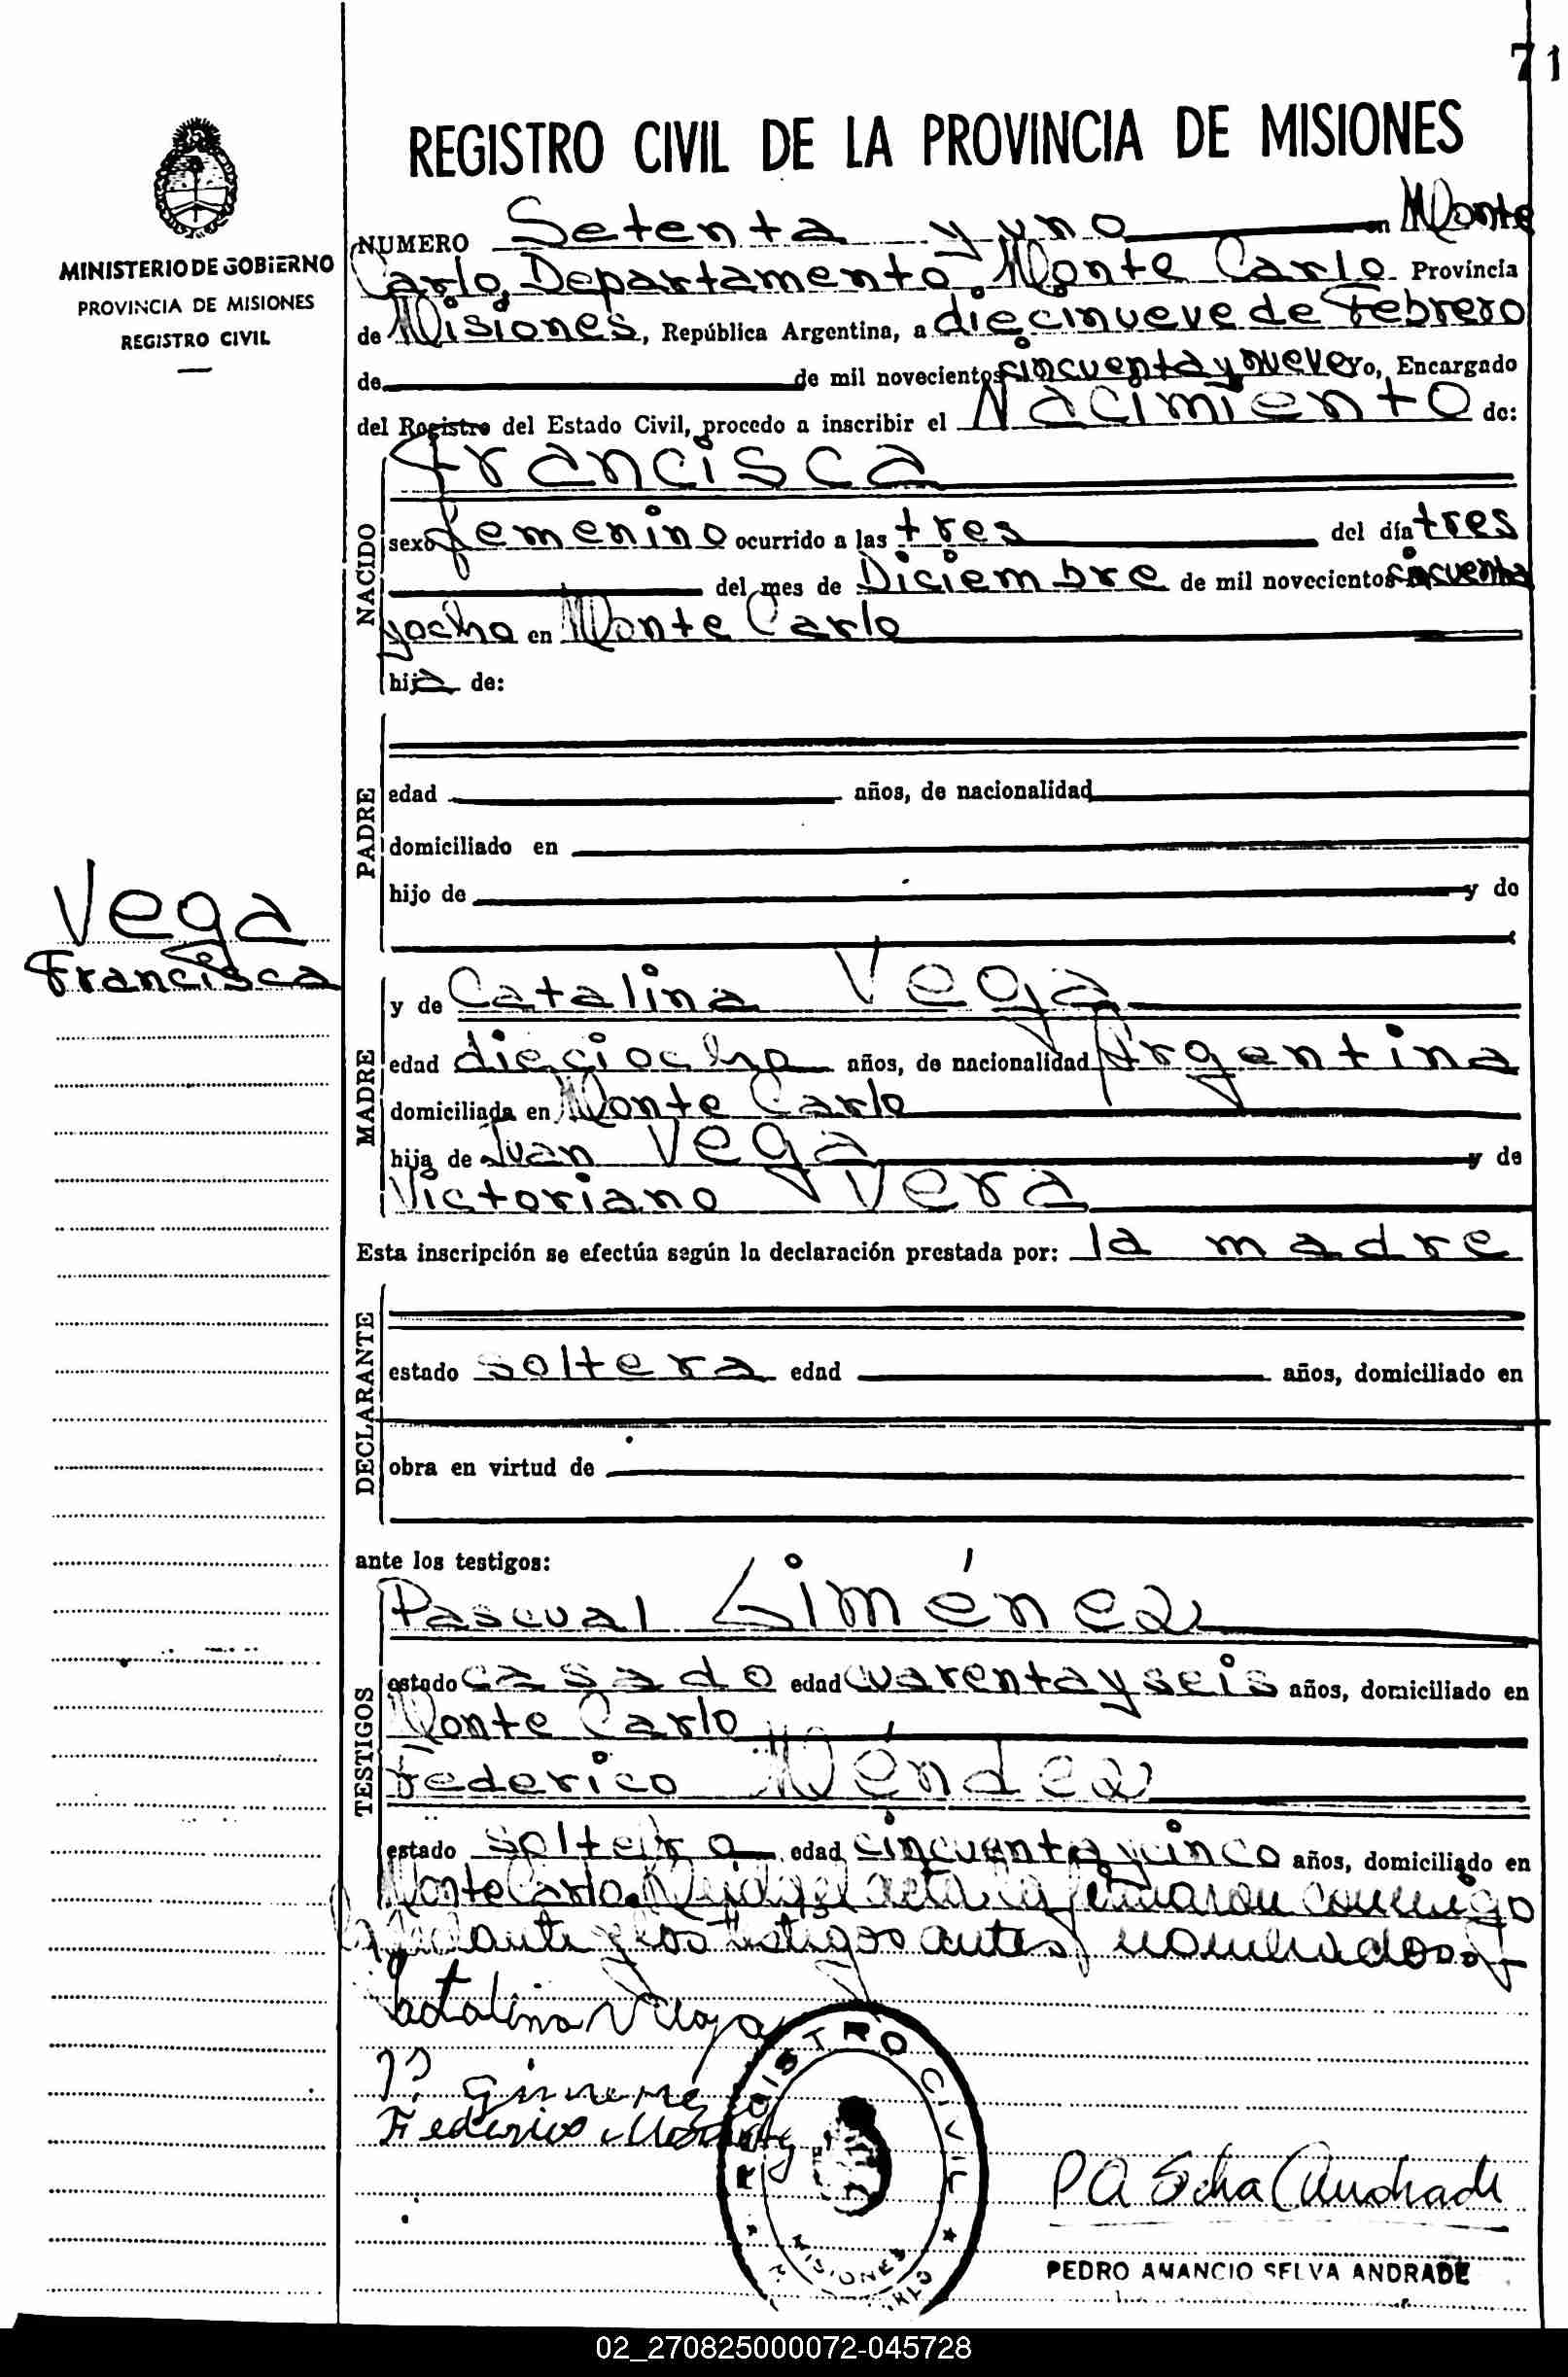 71
REGISTRO CIVIL DE LA PROVINCIA DE MISIONES
MINISTERIO DE GOBIERNO
PROVINCIA DE MISIONES
REGISTRO CIVIL
NUMERO Setenta y uno en Monte
Carlo, Departamento Monte Carlo Provincia
de Misiones, República Argentina, a diecinueve de Febrero
de de mil novecientos cincuenta y nueve yo, Encargado
del Registro del Estado Civil, procedo a inscribir el Nacimiento de:
NACIDO
Francisca
sexo femenino ocurrido a las tres del día tres
del mes de Diciembre de mil novecientos cincuenta
y ocho en Monte Carlo
hija de:
PADRE
edad años, de nacionalidad
domiciliado en
hijo de y de
Vega
Francisca
MADRE
y de Catalina Vega
edad dieciocho años, de nacionalidad Argentina
domiciliada en Monte Carlo
hija de Juan Vega y de
Victoriano Vera
Esta inscripción se efectúa según la declaración prestada por: la madre
DECLARANTE
estado soltera edad años, domiciliado en
obra en virtud de
ante los testigos:
TESTIGOS
Pascual Giménez
estado casado edad cuarenta y seis años, domiciliado en
Monte Carlo
Federico Méndez
estado soltero edad cincuenta y cinco años, domiciliado en
Monte Carlo. Leida el acta la firmaron conmigo
la declarante y los testigos antes nombrados
Catalina Vega
P. Gimenez
Federico Mendez
REGISTRO CIVIL
MISIONES
PA Selva Andrade
PEDRO AMANCIO SELVA ANDRADE
02_270825000072-045728